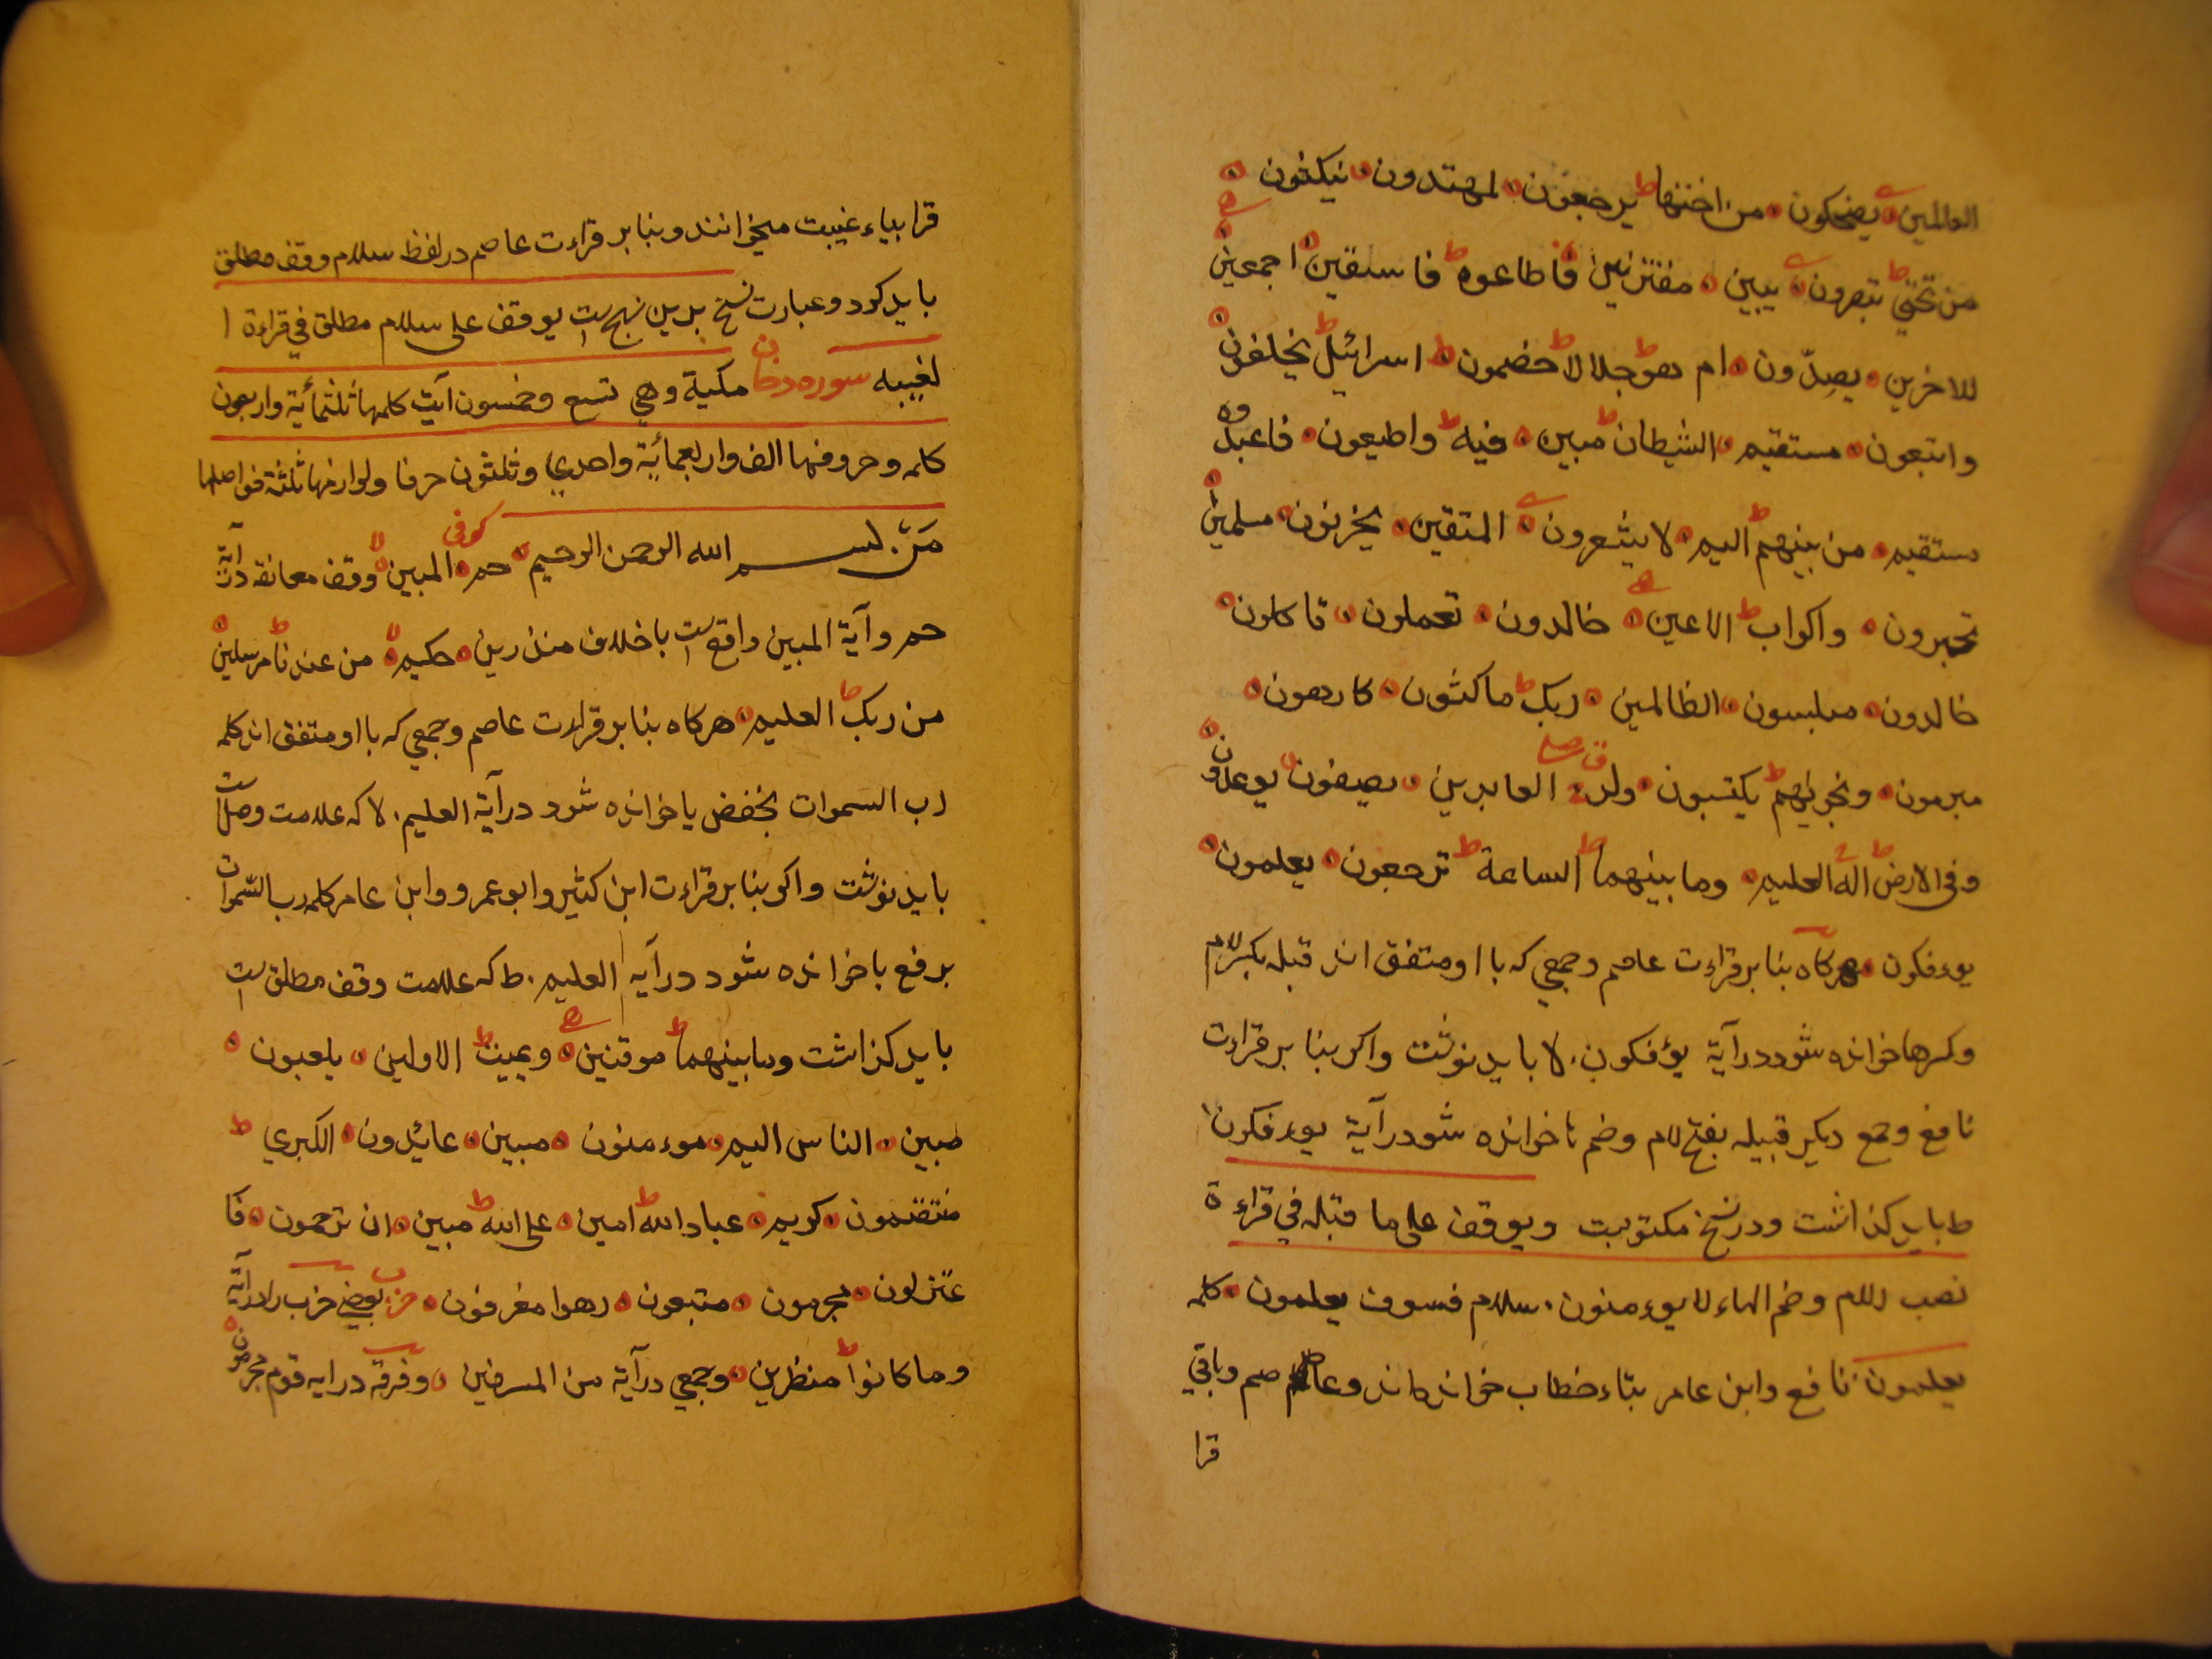 العالمين يضحكون من اختها يرجعون لمهتدون ينكثون
من تحتي تبصرون يبين مقترنين فاطاعوه فاسقين اجمعين
للاخرين يصدّون ام هو جدلا خصمون اسرائيل يخلفون
واتبعون مستقيم الشيطان مبين فيه واطيعون فاعبدوه
مستقيم من بينهم اليم لا يشعرون المتقين يحزنون مسلمين
تحبرون واكواب الاعين خالدون تعملون تاكلون
خالدون مبلسون الظالمين ربك ماكثون كارهون
مبرمون ونجويهم يكتبون ولد العابدين يصفون يوعدون
وفي الارض اله العليم وما بينهما الساعة ترجعون يعلمون
يوءفكون هركاه بنا بر قراءت عاصم وجمعي كه با او متفق اند قبله بكسر لام
وكسرها خوانده شود درآية يؤفكون لا بايد نوشت واكر بنا بر قراءت
نافع وجمع ديكر قبيله بفتح لام وضم ها خوانده شود درآية يوءفكون
ط بايد كذاشت ودر نسخ مكتوبست ويوقف على ما قبله في قراءة
نصب اللام وضم الهاء لا يوءمنون سلام فسوف يعلمون كلمه
يعلمون نافع وابن عامر بتاء خطاب خوانده اند وعاصم وباقي
قرا
قرا بياء غيبت ميخوانند وبنا بر قراءت عاصم در لفظ سلام وقف مطلق
بايد كرد وعبارت نسخ بدين نهج است يوقف على سلام مطلق في قراءة ا
لغيبه سوره دخان مكية وهي تسع وخمسون آيت كلمها ثلثمائة واربعون
كلمه وحروفها الف واربعمائة واحدي وثلثون حرفا ولوازمها ثلثة فواصلها
مَنّ بسم الله الرحمن الرحيم حم كوفى المبين لا وقف معانقه در آية
حم وآية المبين واقع است باخلاف منذرين حكيم من عندنا مرسلين
من ربك العليم هركاه بنا بر قراءت عاصم وجمعي كه با او متفق اند كلمه
رب السموات بخفض با خوانده شود درآية العليم لا كه علامت وصل است
بايد نوشت واكر بنا بر قراءت ابن كثير وابو عمرو وابن عامر كلمه رب السّموات
برفع با خوانده شود درآيه العليم ط كه علامت وقف مطلق است
بايد كذاشت وما بينهما موقنين ويميت الاولين يلعبون
مبين الناس اليم موءمنون مبين عائدون الكبري ط
منتقمون كريم عباد الله امين على الله مبين ان ترجمون فا
عتزلون مجرمون متبعون رهوا مغرقون حزب بعضي حزب را درآية
وما كانوا منظرين وجمعي درآية من المسرفين وفرقه درايه قوم مجرمون